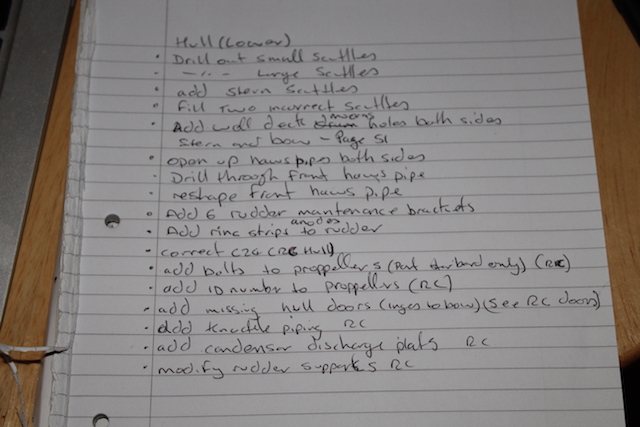 Hull (Lower)
• Drill out small scuttles
• —"— Large Scuttles
• add Stern Scuttles
• Fill Two incorrect scuttles
• Add well deck mooring holes both sides
Stern and bow - Page 51
• open up haws pipes both sides
• Drill through front haws pipe
• reshape front haws pipe
• Add 6 rudder maintenance brackets
• Add zinc strips anodes to rudder
• correct C24 (RC Hull)
• add bolts to proppellers (Port starboard only) (RC)
• add ID number to proppellers (RC)
• add missing hull doors (to bow) (see RC doors)
• add Knuckle piping RC
• add condensor discharge plats RC
• modify rudder supports RC